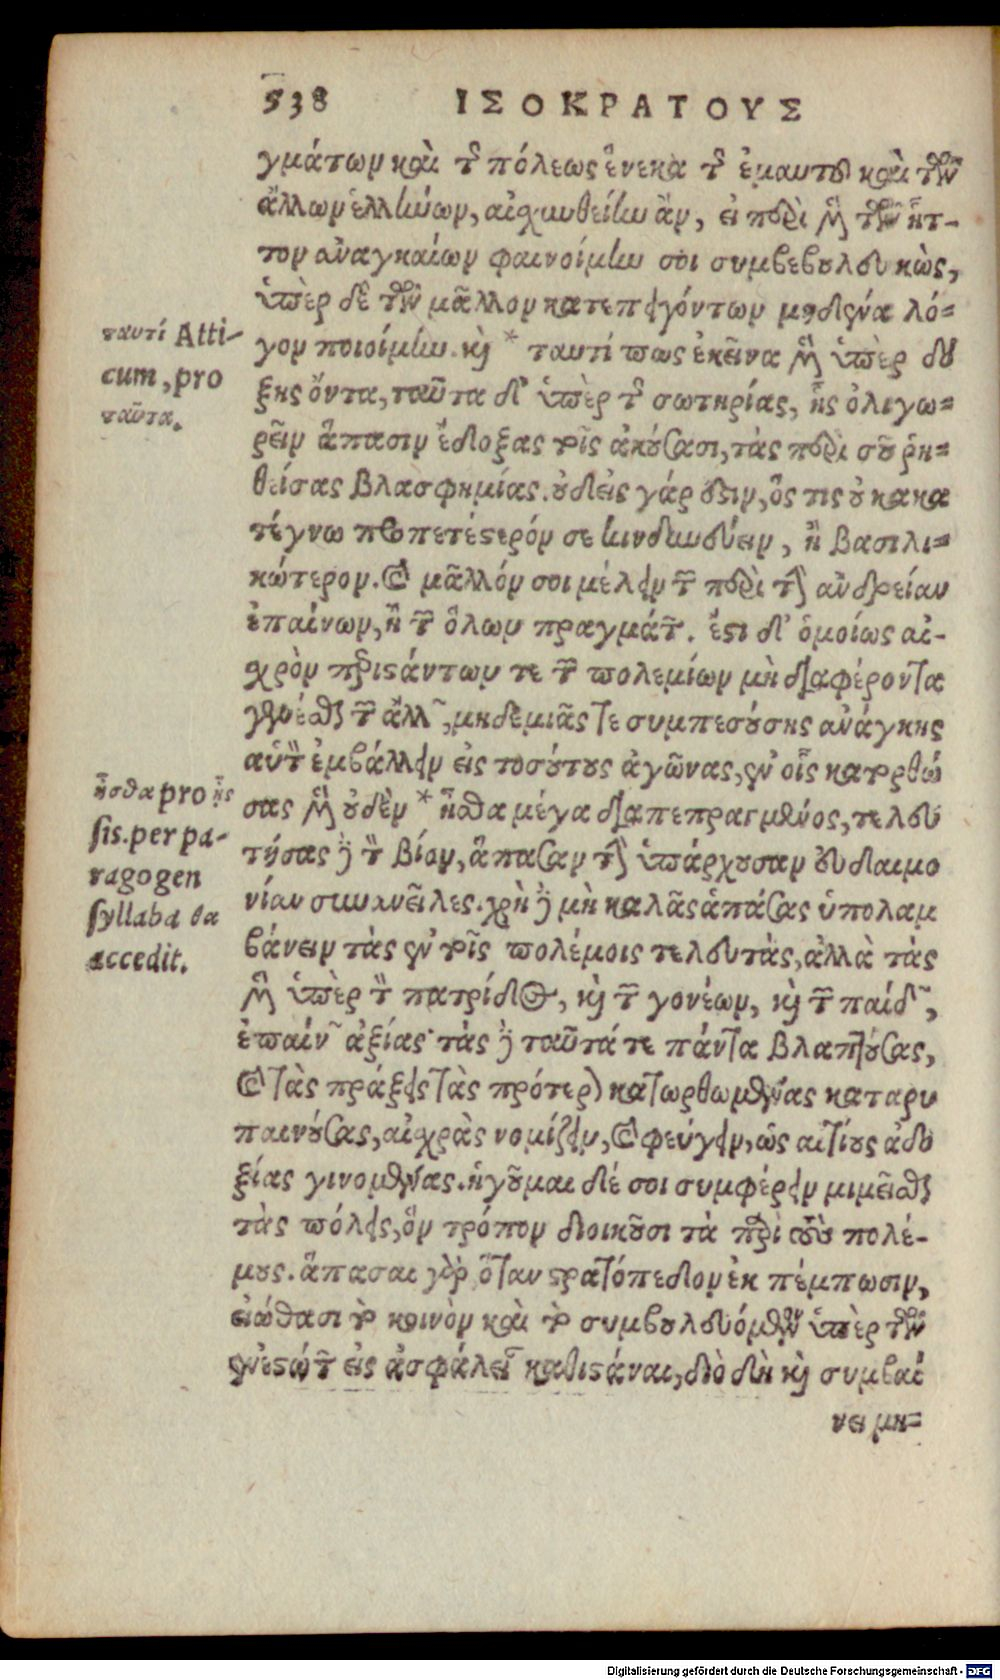 538 ΙΣΟΚΡΑΤΟΥΣ
γμάτων καὶ τ͂ πόλεως ἕνεκα τ͂ ἐμαυτοῦ καὶ τῶν
ἄλλων ἑλλήνων, αἰσχυνθείην ἂν, εἰ περὶ μὲν τῶν ἧτ-
τον ἀναγκαίων φαινοίμην σοι συμβεβουλευκὼς,
ὑπὲρ δὲ τῶν μᾶλλον κατεπειγόντων μηδένα λό-
γον ποιοίμην. καὶ * ταυτί πως ἐκεῖνα μὲν ὑπὲρ δό
ξης ὄντα, ταῦτα δ' ὑπὲρ τ͂ σωτηρίας, ἧς ὀλιγω-
ρεῖν ἅπασιν ἔδοξας τοῖς ἀκούσασι, τὰς περὶ σοῦ ῥη-
θείσας βλασφημίας. οὐδεὶς γάρ ἐστιν, ὅς τις οὐ κακα
τέγνω προπετέστερόν σε κινδυνεύειν, ἢ βασιλι-
κώτερον. καὶ μᾶλλόν σοι μέλειν τ͂ περὶ τὴν ἀνδρείαν
ἐπαίνων, ἢ τ͂ ὅλων πραγμάτ͂. ἔστι δ' ὁμοίως αἰ-
σχρὸν περιστάντων τε τ͂ πολεμίων μὴ διαφέροντα
γενέσθαι τ͂ ἄλλ͂, μηδεμιᾶς τε συμπεσούσης ἀνάγκης
αὑτὸν ἐμβάλλειν εἰς τοσούτους ἀγῶνας, ἐν οἷς κατορθώ
σας μὲν οὐδὲν * ἦσθα μέγα διαπεπραγμένος, τελευ
τήσας δὲ τὸν βίον, ἅπασαν τὴν ὑπάρχουσαν εὐδαιμο
νίαν συνανεῖλες. χρὴ δὲ μὴ καλὰς ἁπάσας ὑπολαμ
βάνειν τὰς ἐν τοῖς πολέμοις τελευτὰς, ἀλλὰ τὰς
μὲν ὑπὲρ τ͂ πατρίδος, καὶ τ͂ γονέων, καὶ τ͂ παίδ͂,
ἐπαίν͂ ἀξίας· τὰς δὲ ταῦτά τε πάντα βλαπτούσας,
καὶ τὰς πράξεις τὰς πρότερον κατωρθωμένας καταρυ
παινούσας, αἰσχρὰς νομίζειν, καὶ φεύγειν, ὡς αἰτίους ἀδο
ξίας γινομένας. ἡγοῦμαι δέ σοι συμφέρειν μιμεῖσθαι
τὰς πόλεις, ὃν τρόπον διοικοῦσι τὰ περὶ τοὺς πολέ-
μους. ἅπασαι γὰρ ὅταν στρατόπεδον ἐκ πέμπωσιν,
εἰώθασι τὸ κοινὸν καὶ τὸ συμβουλευόμενον ὑπὲρ τῶν
ἐνεστώτ͂ εἰς ἀσφάλεῖ καθιστάναι, διὸ δὴ καὶ συμβαί
νει μη-
ταυτί Atti-
cum, pro
ταῦτα.
ἦσθα pro ἦς
sis. per pa-
ragogen
syllaba θα
accedit.
Digitalisierung gefördert durch die Deutsche Forschungsgemeinschaft - DFG